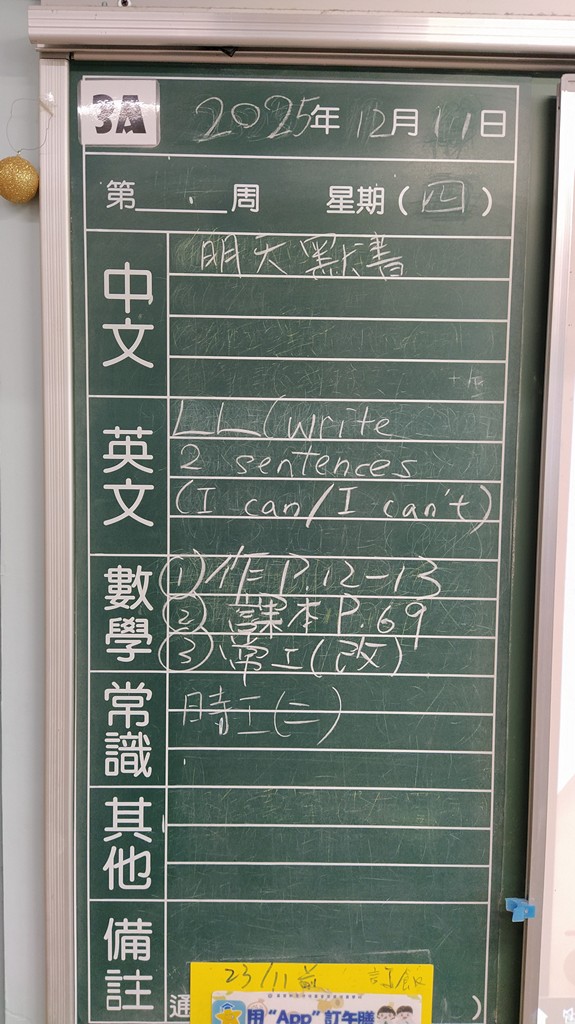 3A 2025年12月11日
第 周 星期(四)
中文 明天默書
英文 LL(write
2 sentences
(I can/I can't)
數學 ①作P.12-13
②課本P.69
③常工(改)
常識 時工(二)
其他
備註
23/11前 訂飯
通 )
用"App"訂午膳